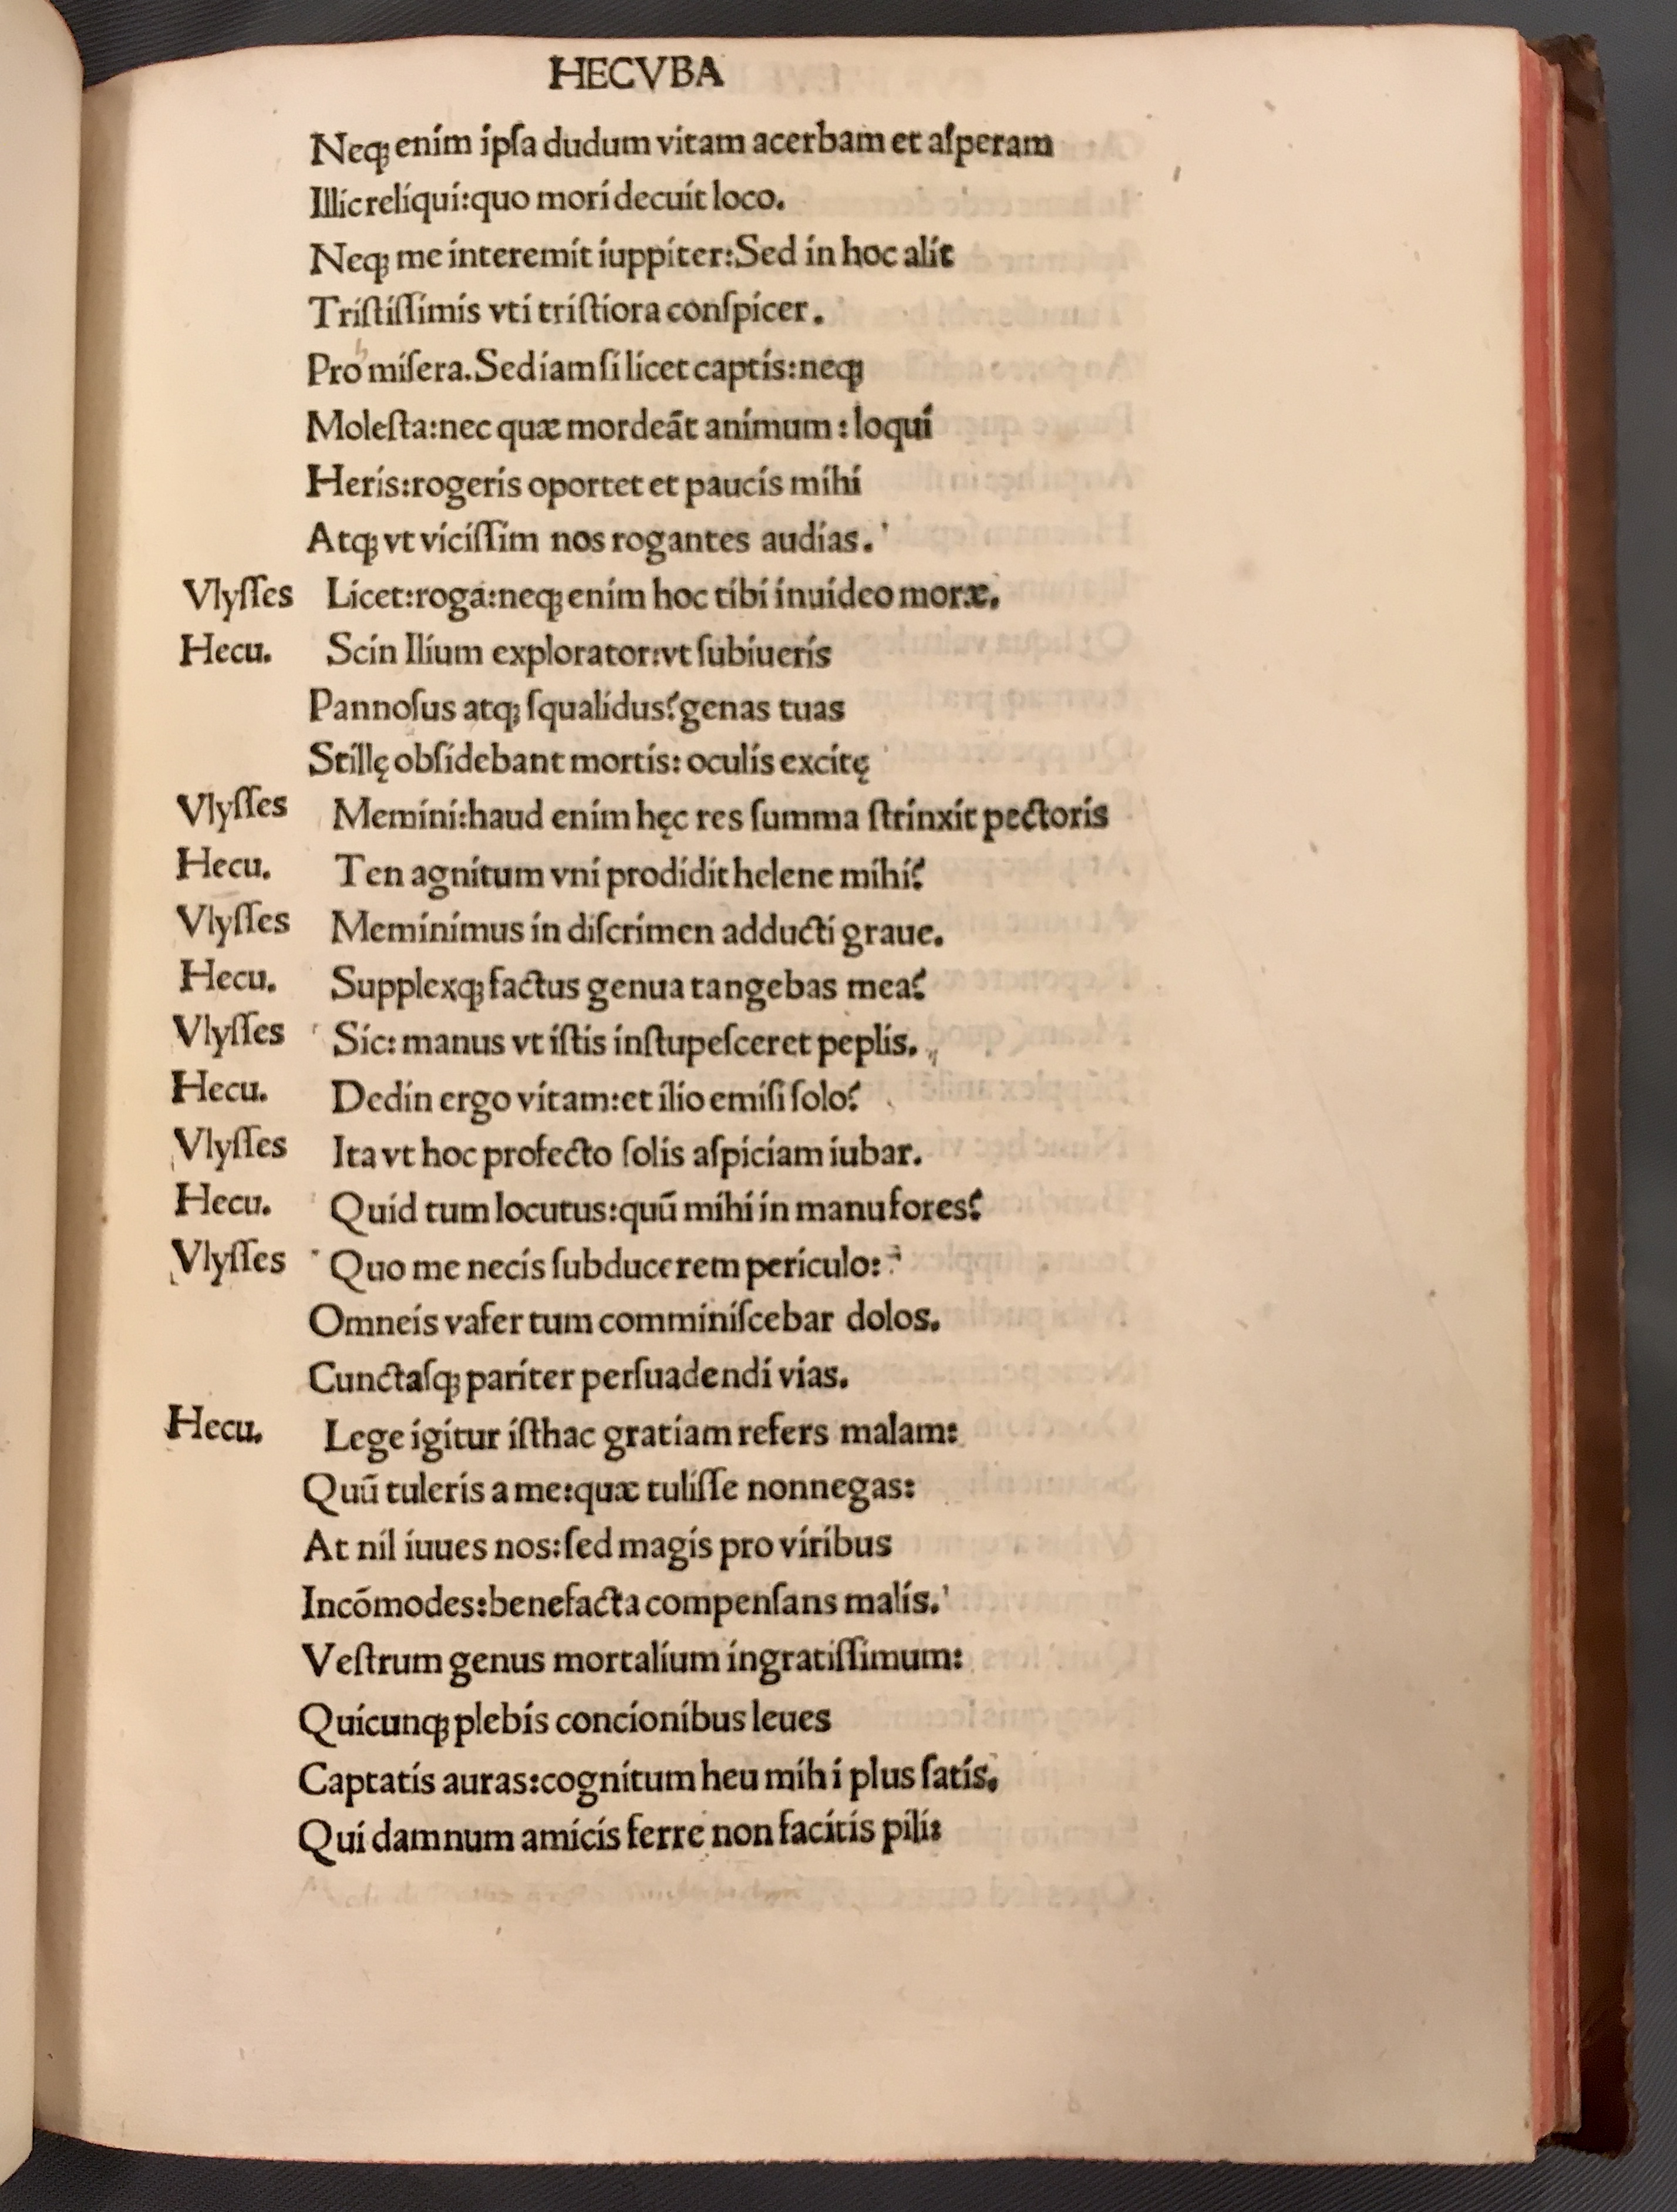 HECVBA
Neqꝫ enim ipſa dudum vitam acerbam et aſperam
Illic reliqui:quo mori decuit loco.
Neqꝫ me interemit iuppiter:Sed in hoc alit
Triſtiſſimis vti triſtiora conſpicer.
Pro miſera.Sed iam ſi licet captis:neqꝫ
Moleſta:nec quæ mordeãt animum:loqui
Heris:rogeris oportet et paucis mihi
Atqꝫ vt viciſſim nos rogantes audias.
Vlyſſes Licet:roga:neqꝫ enim hoc tibi inuideo moræ.
Hecu. Scin Ilium explorator:vt ſubiueris
Pannoſus atqꝫ ſqualidus?genas tuas
Stillę obſidebant mortis: oculis excitę
Vlyſſes Memini:haud enim hęc res ſumma ſtrinxit pectoris
Hecu. Ten agnitum vni prodidit helene mihi?
Vlyſſes Meminimus in diſcrimen adducti graue.
Hecu. Supplexqꝫ factus genua tangebas mea?
Vlyſſes Sic: manus vt iſtis inſtupeſceret peplis.
Hecu. Dedin ergo vitam:et ilio emiſi ſolo?
Vlyſſes Ita vt hoc profecto ſolis aſpiciam iubar.
Hecu. Quid tum locutus:quũ mihi in manu fores?
Vlyſſes Quo me necis ſubducerem periculo:
Omneis vafer tum comminiſcebar dolos.
Cunctaſqꝫ pariter perſuadendi vias.
Hecu. Lege igitur iſthac gratiam refers malam:
Quũ tuleris a me:quæ tuliſſe non negas:
At nil iuues nos:ſed magis pro viribus
Incõmodes:benefacta compenſans malis.
Veſtrum genus mortalium ingratiſſimum:
Quicunqꝫ plebis concionibus leues
Captatis auras:cognitum heu mihi plus ſatis.
Qui damnum amicis ferre non facitis pili: